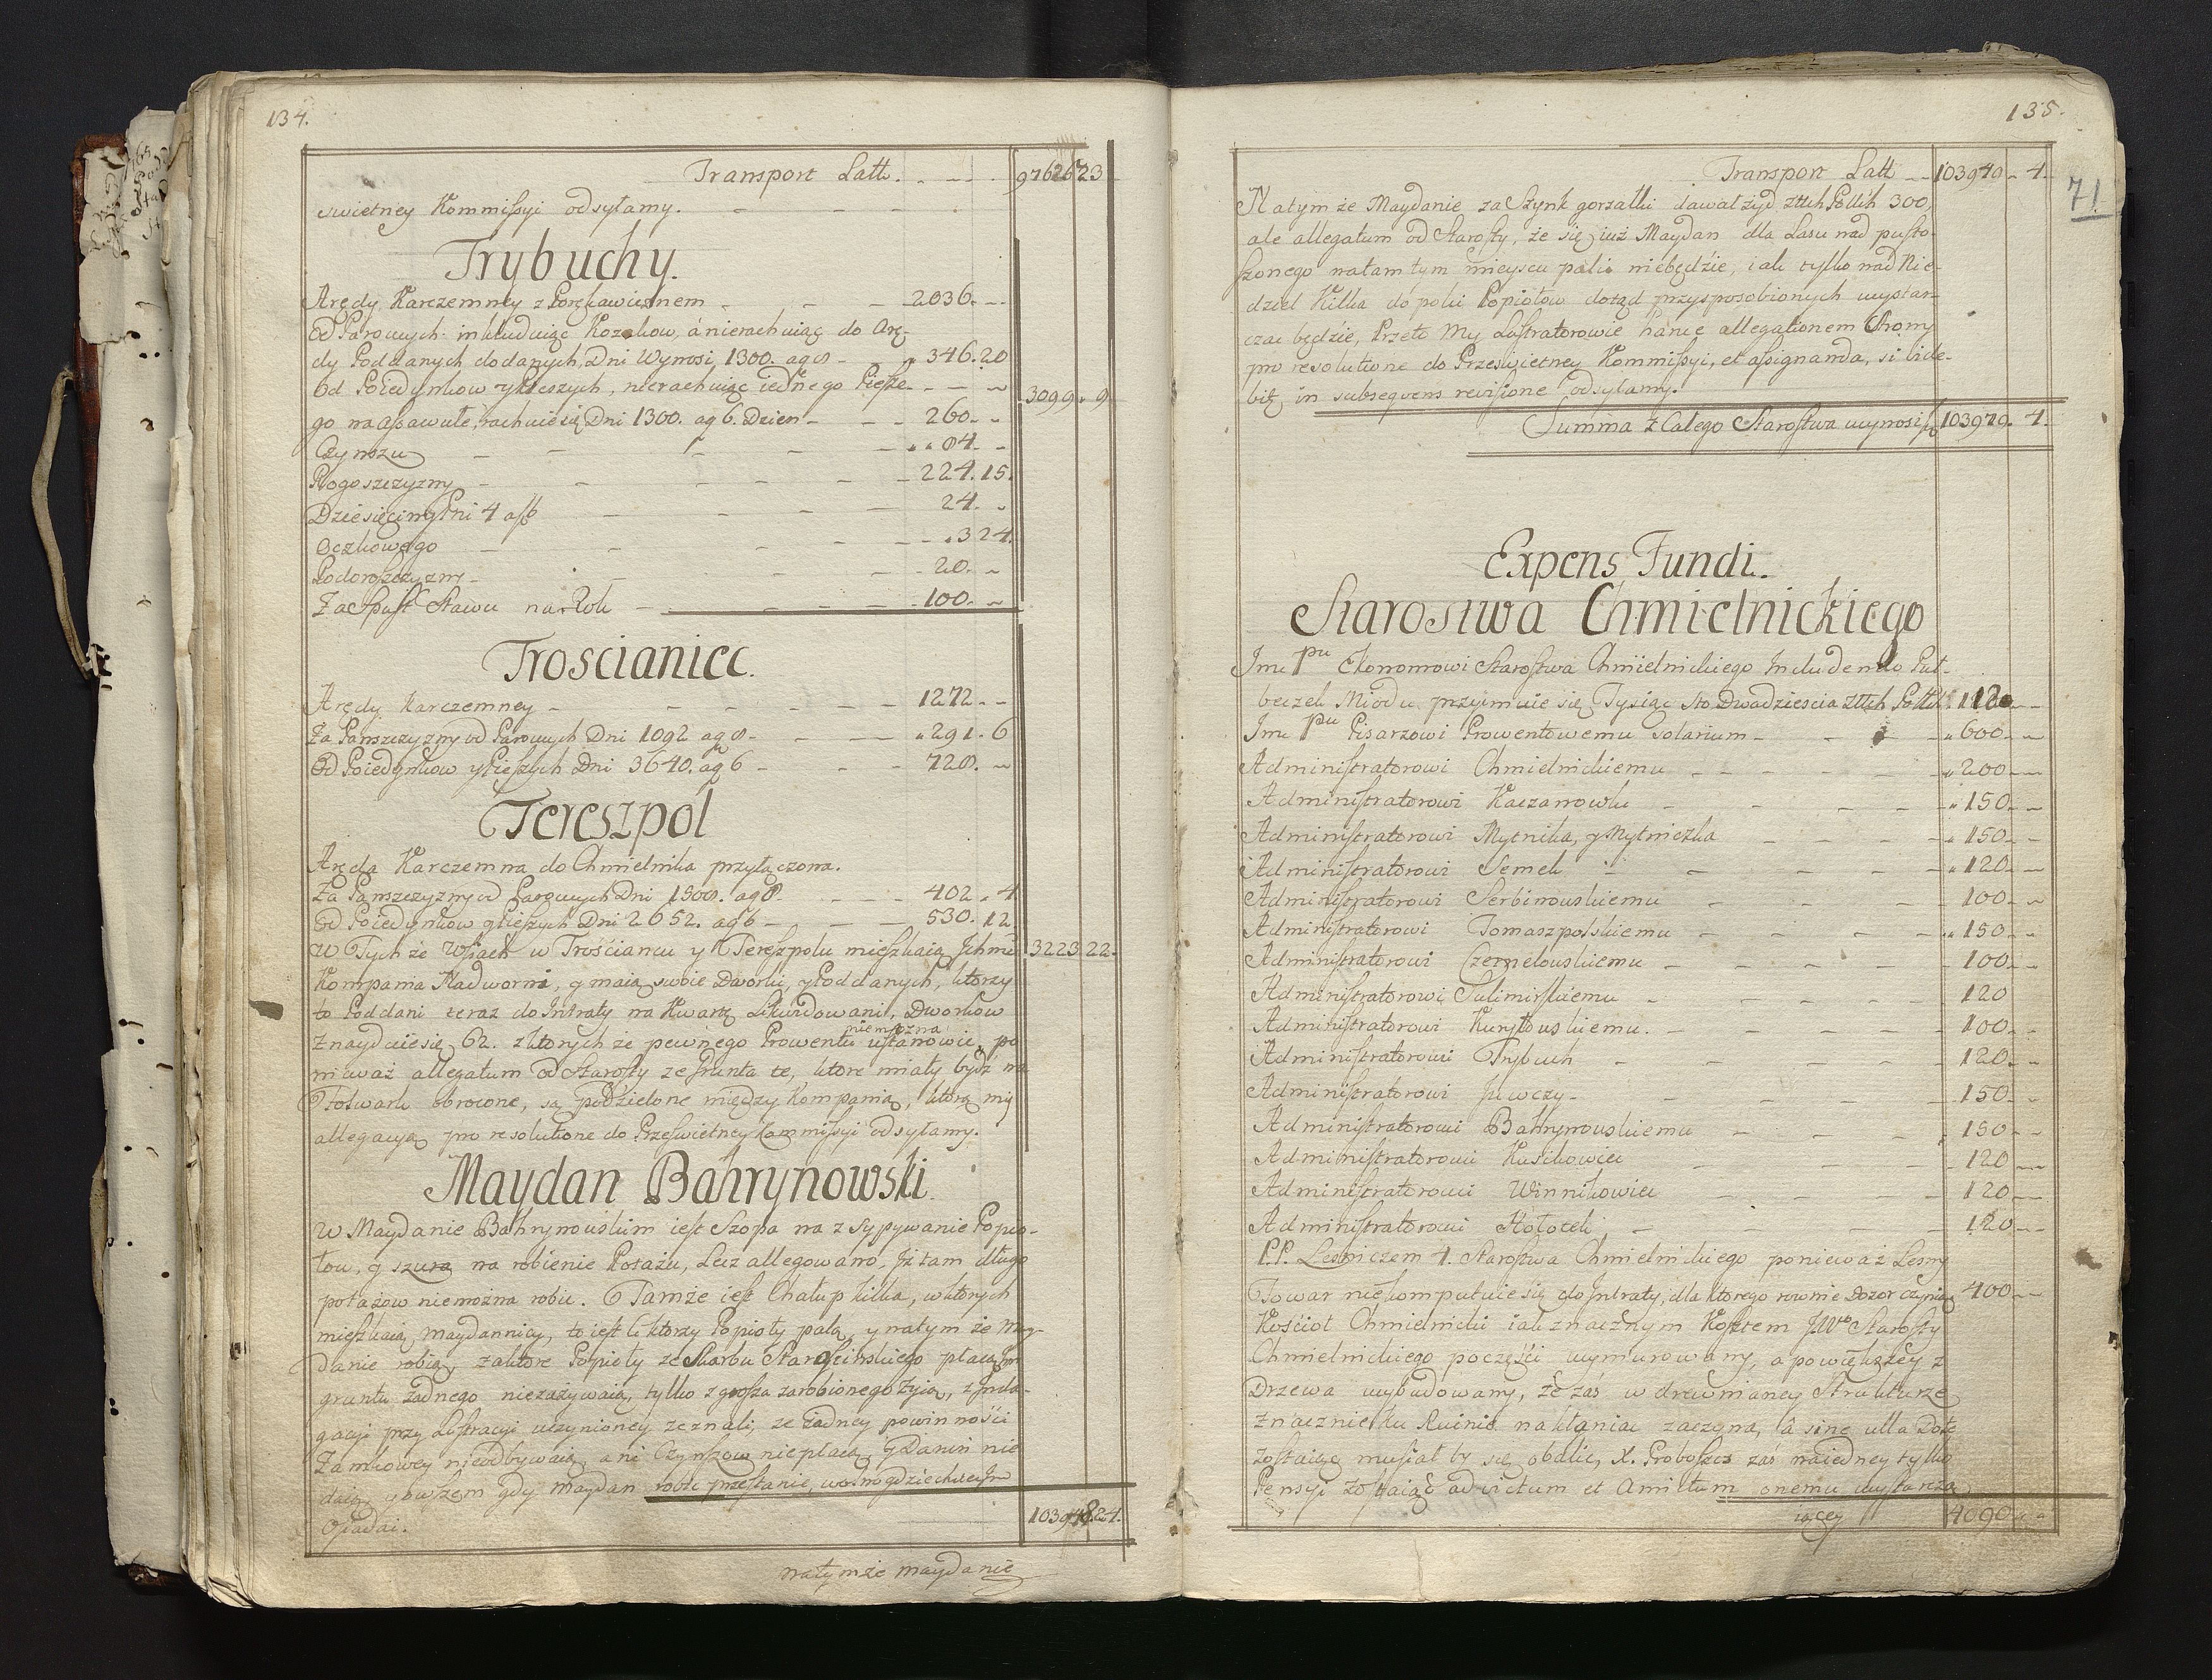 134.
Transport Latt. 97626 23
swietney Kommissyi odsyłamy.
Trybuchy.
Arędy Karczemney z Porękawicznem 2036.
Od Parowych inkluduiąc Kozakow, á nierachuiąc do Arę-
dy Poddanych dodanych, Dni wynosi 1300. ag 8 346.20
Od Poiedynkow y Pieszych, nierachuiąc iednego Piesze- 3099. 9
go na assawułę, rachuie się Dni 1300. ag 6. Dzien 260.
Czynszu 84.
Rogoszczyzny 224.15.
Dziesięciny Pni 4 a ff 6 24.
Oczkowego 3 24.
Podoroszczyzny 20.
Za Spust Stawu na Rok 100.
Troscianiec.
Arędy Karczemney 1272.
Za Panszczyzny od Parowych Dni 1092 ag 8 291. 6
Od Poiedynkow y Pieszych Dni 3640. ag 6 728.
Tereszpol
Aręda Karczemna do Chmielnika przyłączona.
Za Panszczyzny od Parowych Dni 1508. ag 8. 402. 4
Od Poiedynkow y Pieszych Dni 2652. ag 6 530. 12
W Tych że Wsiach w Trościancu y Tereszpolu mieszkaią Ichmć 3223 22.
Kompania Nadworna, y maią swoie Dworki, y Poddanych, ktorzy
to Poddani teraz do Intraty na Kwartę Likwidowani, Dworkow
niemożna
Znayduie się 62. z ktorych że pewnego Prowentu ustanowić, po
nieważ allegatum od Starosty że Grunta te, ktore miały bydź na
Folwark obrocone, są podzielone między Kompanią, ktorą my
allegacyą pro resolutione do Prześwietney Kommissyi odsyłamy.
Maydan Bahrynowski
W Maydanie Bahrynowskim iest Szopa na zsypywanie Popio-
łow, y szura na robienie Potażu, Lecz allegowano, Iż tam długo
potażow niemożna robic. Tamże iest Chałup kilka, w ktorych
mieszkaią, maydannicy, to iest ci ktorzy Popioły palą, y natym że May-
danie robią, za ktore Popioły ze Skarbu Starościnskiego płacą Im
gruntu żadnego niezażywaią, tylko z grosza zarobionego żyią, z Inda-
gacyi przy Lustracyi uczynioney zeznali, że żadney powinności
Zamkowey nieodbywaią, ani Czynszow niepłacą, y Danin nie
daią, y owszem gdy maydan robic przestanie, wolno gdziechcieć Im
Osiadać. 103948 24.
natymże maydanie
135.
71
Transport Latt 103940 4.
Natym że Maydanie za Szynk gorzałki dawał żyd złłch Pollch 300,
ale allegatum od Starosty, że się iuż Maydan dla Lasu nad pusto-
szonego natamtym mieyscu palić niebędzie, iak tylko nad Nie-
dziel Kilka do poki Popiołow dotąd przysposobionych wystar-
czać będzie, Przeto My Lustratorowie hanc allegationem strony
pro resolutione do Prześwietney Kommissyi, et assignanda, si vide-
bitę in subsequens revisione odsyłamy.
Summa z Całego Starostwa wynosi ff 103940. 4.
Expens Fundi.
Starostwa Chmielnickiego
Jmć Pnu Ekonomowi Starostwa Chmielnickiego Includendo Puł-
beczek Miodu przyimuie się Tysiąc sto Dwadziescia złłch Polłch 1120
Jmć Pnu Pisarzowi Prowentowemu solarium 600
Administratorowi Chmielnickiemu 200
Administratorowi Kaczanowki 150
Administratorowi Mytnika, y Mytniczka 150
Administratorowi Semek 120
Administratorowi Serbinowskiemu 100
Administratorowi Tomaszpolskiemu 150
Administratorowi Czemelowskiemu 100
Administratorowi Sulimirskiemu 120
Administratorowi Kuryłowskiemu. 100
Administratorowi Trybuch 120
Administratorowi Iwczy 150
Administratorowi Bahrynowskiemu 150
Administratorowi Kusikowiec 120
Administratorowi Winnikowiec 120
Administratorowi Hołotek 120
P.P. Leśniczem 4. Starostwa Chmielnickiego ponieważ Lesny
Towar niekomputuie się do Intraty, dla ktorego rownie Dozor czynią 400
Kościoł Chmielnicki iak znacznym Kosztem JWo Starosty
Chmielnickiego po części wymurowany, a powiększey z
Drzewa wybudowany, że zaś w drewnianey Strukturze
znacznie ku Ruinie nakłaniać zaczyna, á sine ulla Dote
zostaiąc musiał by się obalić, X. Proboszcz zaś na iedney tylko
Pensyi zostaiąc ad victum et Amictum onemu wystarcza
iącey 4090